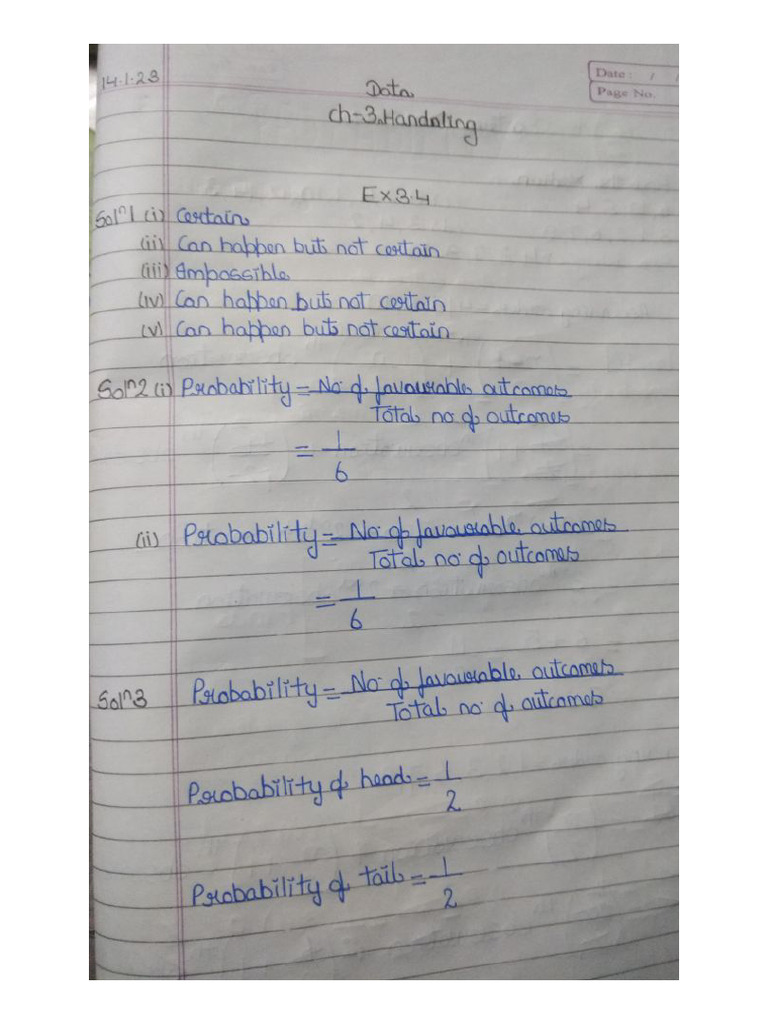 14.1.23
Date: / /
Page No.
Data
ch-3. Handnling
Ex 3.4
Solⁿ1 (i) Certain
(ii) Can happen but not certain
(iii) Impossible
(iv) Can happen but not certain
(v) Can happen but not certain
Solⁿ2 (i) Probability = No of favourable outcomes
Total no of outcomes
= 1
6
(ii) Probability = No of favourable outcomes
Total no of outcomes
= 1
6
Solⁿ3 Probability = No of favourable outcomes
Total no of outcomes
Probability of head = 1
2
Probability of tail = 1
2